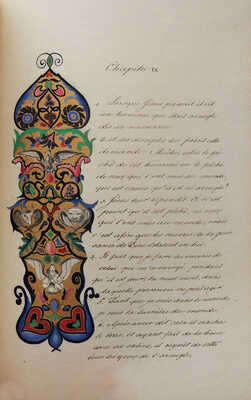 Chapitre IX
1. Lorsque Jésus passait, il vit
un homme qui était aveugle
dès sa naissance.
2. Et ses disciples lui firent
demande : Maître, est-ce le pé-
ché de cet homme ou le péché
de ceux qui l'ont mis au monde,
qui est cause qu'il est né aveugle?
3. Jésus leur répondit : Ce n'est
point qu'il ait péché, ni ceux
qui l'ont mis au monde ; mais
c'est afin que les œuvres de la puis-
sance de Dieu éclatent en lui.
4. Il faut que je fasse les œuvres de
celui qui m'a envoyé, pendant
qu'il est jour ; la nuit vient, dans
laquelle personne ne peut agir.
5. Tant que je suis dans le monde,
je suis la lumière du monde.
6. Après avoir dit cela il cracha
à terre, et ayant fait de la boue
avec sa salive, il oignit de cette
boue les yeux de l'aveugle.